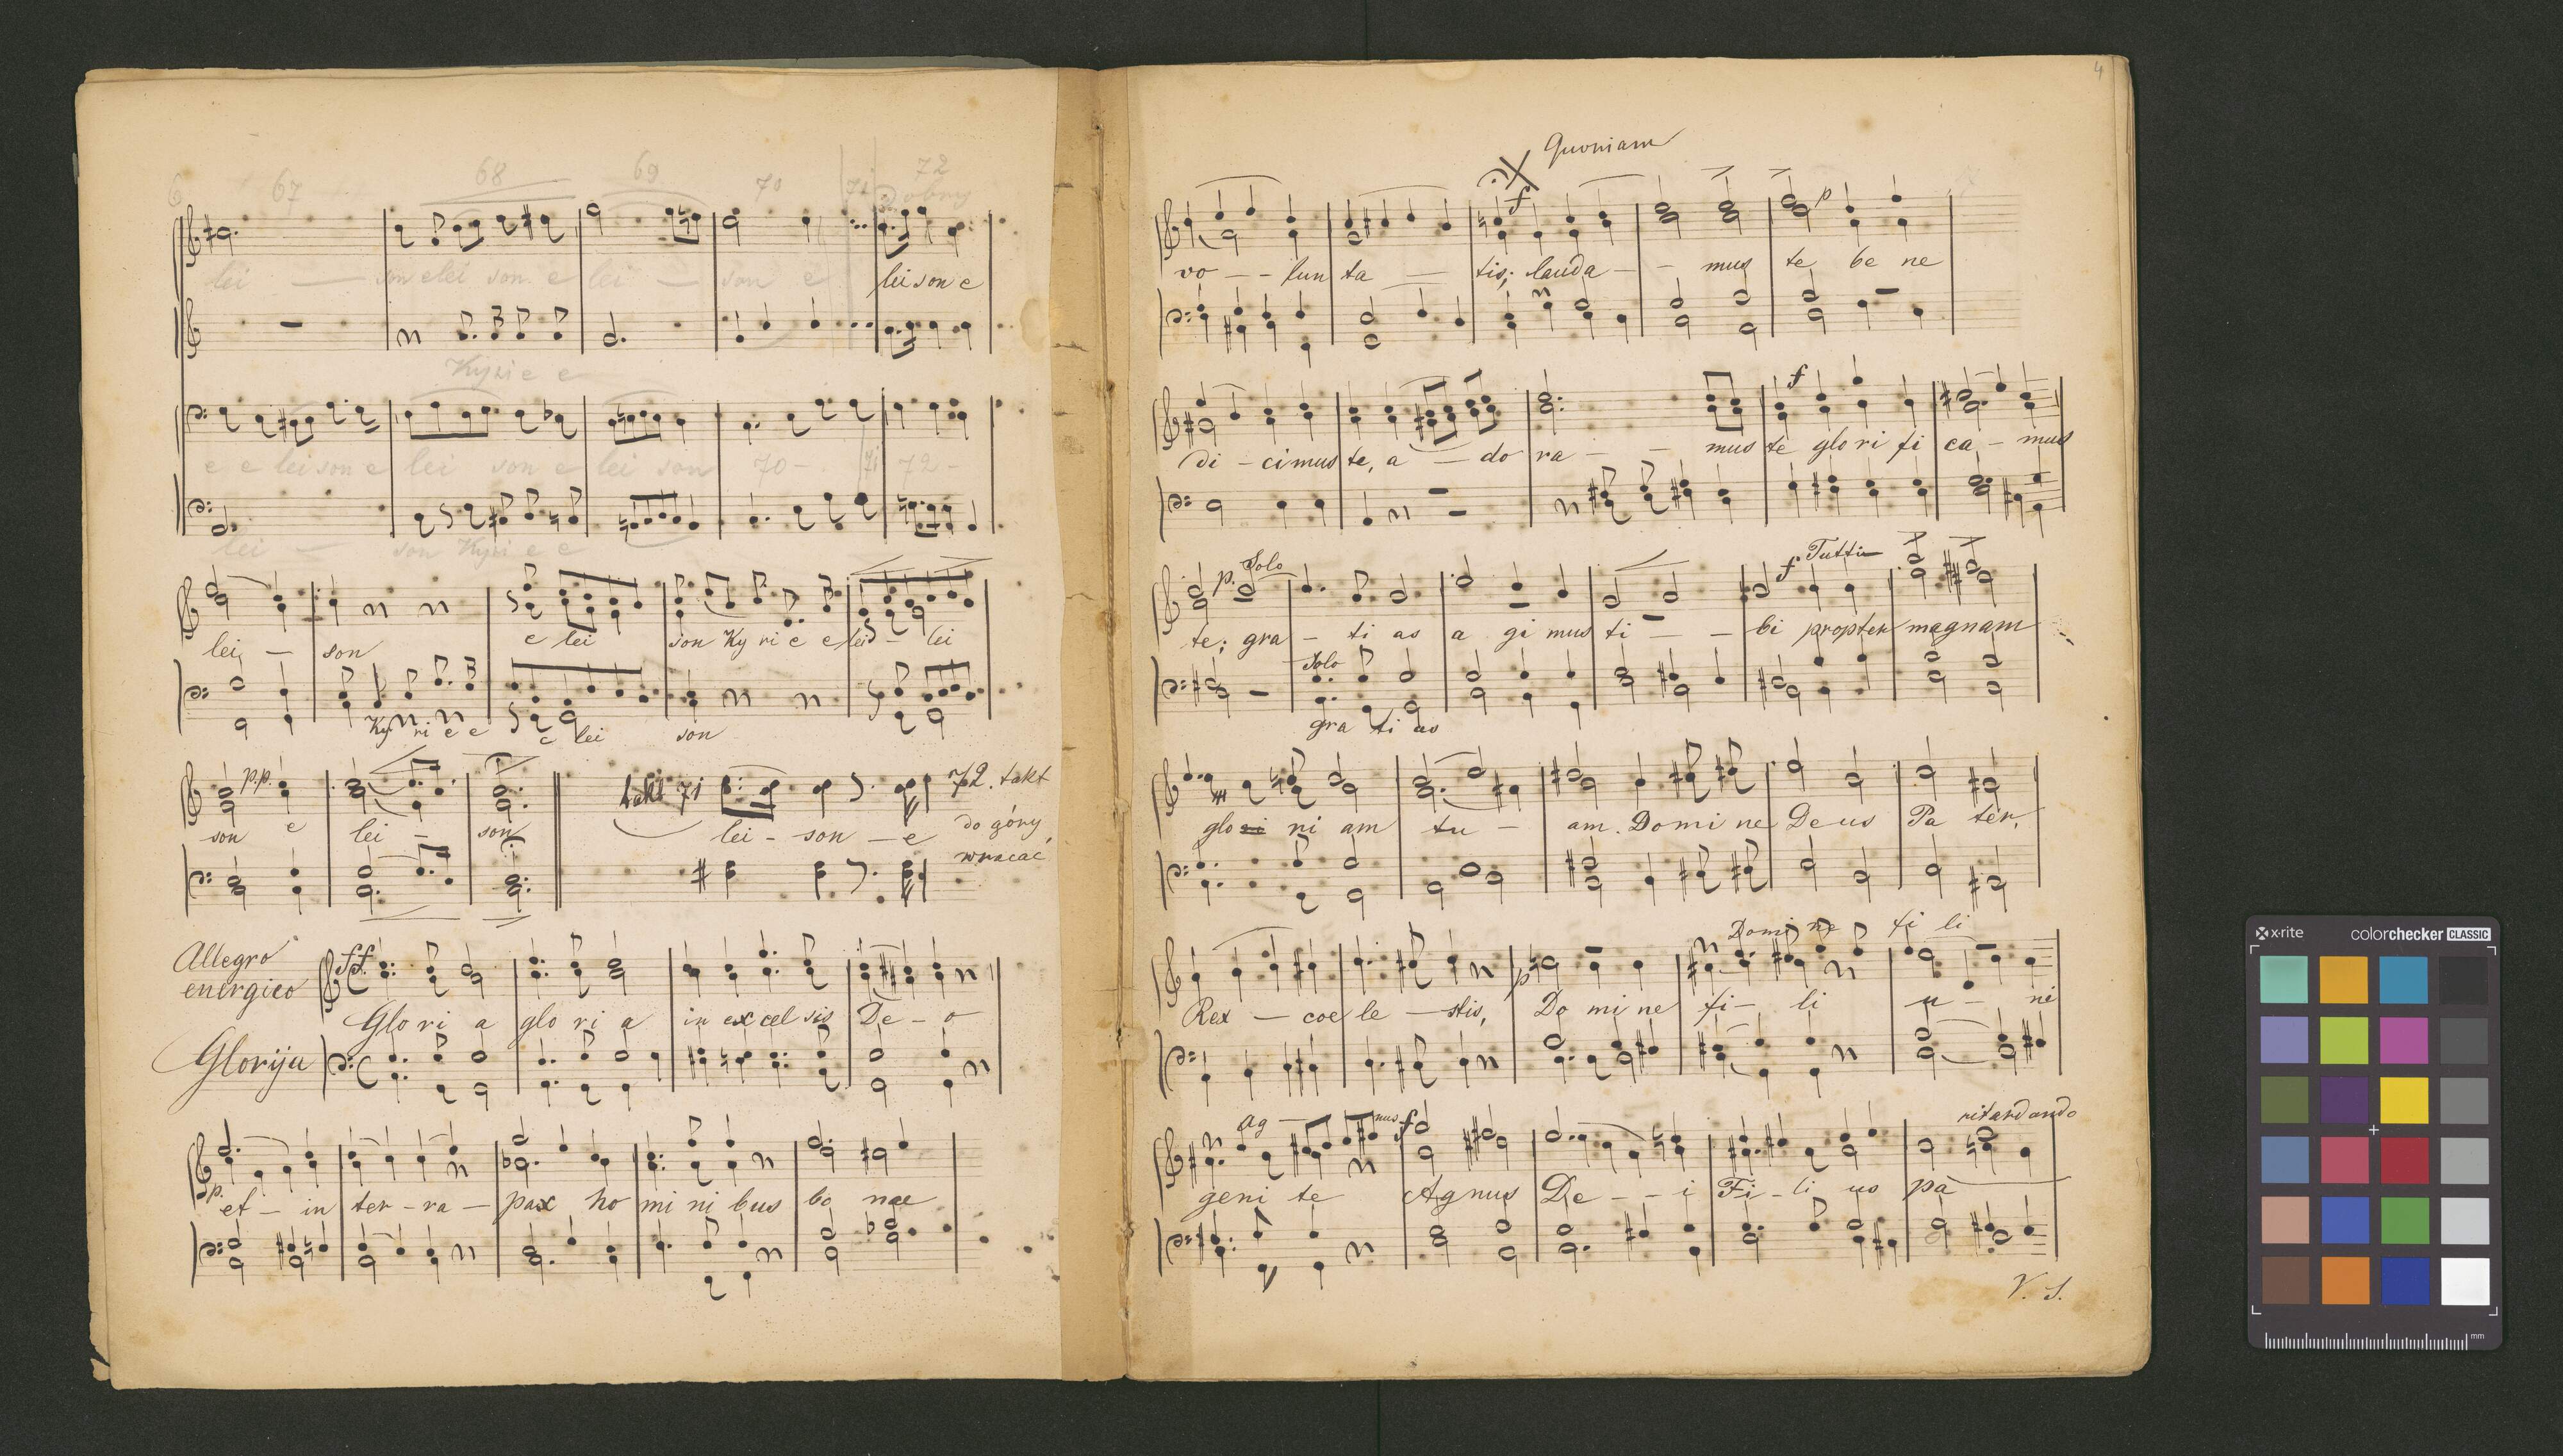 6 67 68 69 70 71 72
Dobry
lei — son elei son e lei — son e lei son e
Kyrie e
e e lei son e lei son e lei son 70 - 71 72 -
lei — son Kyri e e
lei — son e lei son Ky ri e e leis - lei
Ky ri e e e lei son
p.p. takt 71 72. takt
son e lei - son lei - son - e do góry
wracać
Allegro
energico
ff
Glo ri a glo ri a in ex cel sis De - o
Glorija
p.
et - in ter - ra - pax ho mi ni bus bo nae
4
Quoniam
f p
vo - - lun ta — tis; lauda - - mus te be ne
f
di - cimus te, a - do ra - - mus te glo ri fi ca - mus
p. Solo f Tutti
te; gra - ti as a gi mus ti - - bi propter magnam
Solo
gra ti as
glo ri ni am tu - am. Do mi ne De us Pa ter,
Domi ne fi li
p
Rex - coe le - stis, Do mi ne fi - li u - ni
Ag - nus f ritardando
geni te Agnus De - - i Fi - li us pa
V. S.
x-rite colorchecker CLASSIC
mm